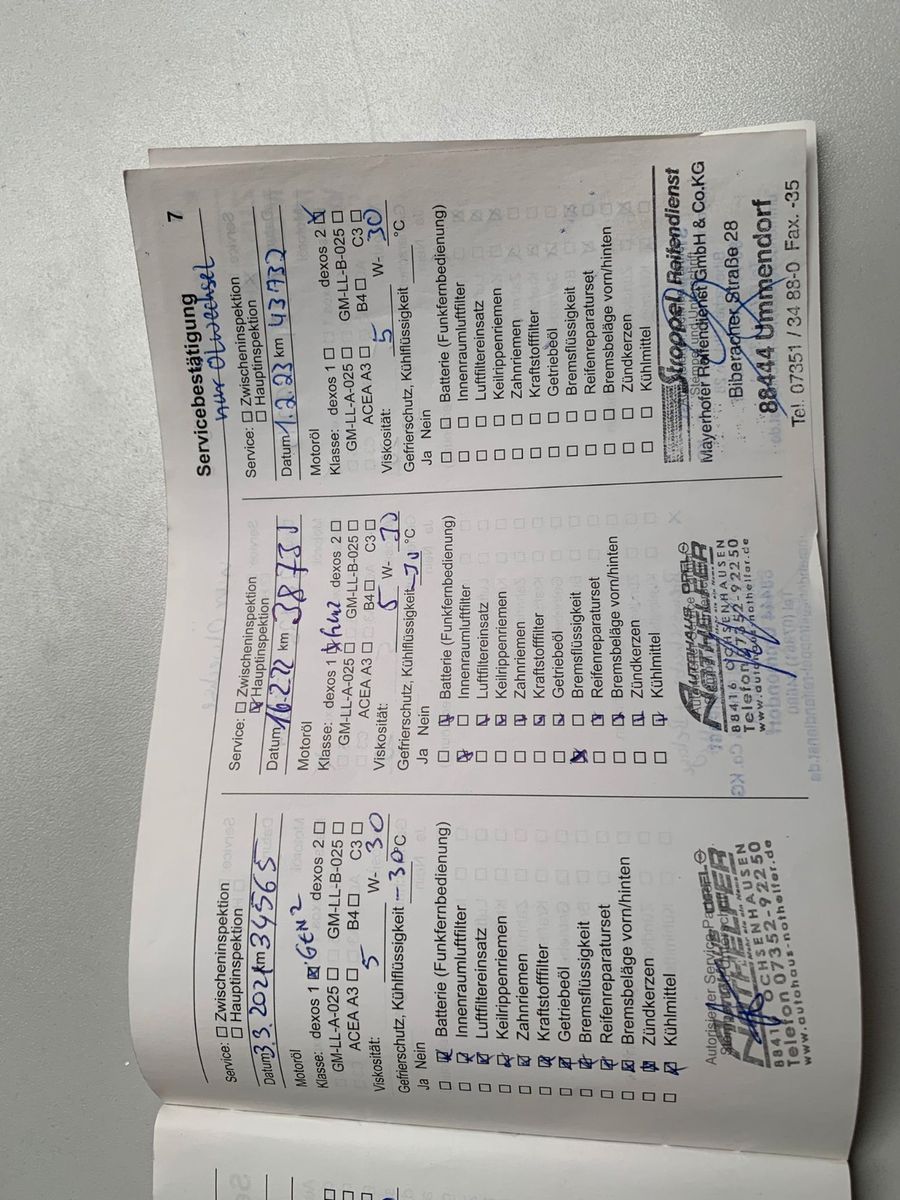 Servicebestätigung 7
Service: ☐ Zwischeninspektion
☐ Hauptinspektion
Datum 3.3.2021 km 34565
Motoröl
Klasse: dexos 1 ☒ GEN 2 dexos 2 ☐
GM-LL-A-025 ☐ GM-LL-B-025 ☐
ACEA A3 ☐ B4 ☐ C3 ☐
Viskosität: 5 W- 30
Gefrierschutz, Kühlflüssigkeit -30 °C
Ja Nein
☐ ☒ Batterie (Funkfernbedienung)
☐ ☒ Innenraumluftfilter
☐ ☒ Luftfiltereinsatz
☐ ☒ Keilrippenriemen
☐ ☒ Zahnriemen
☐ ☒ Kraftstofffilter
☐ ☒ Getriebeöl
☐ ☒ Bremsflüssigkeit
☐ ☒ Reifenreparaturset
☐ ☒ Bremsbeläge vorn/hinten
☐ ☒ Zündkerzen
☐ ☒ Kühlmittel
Autorisierter Service-Partner
OPEL
NOTHELFER
88416 OCHSENHAUSEN
Telefon 07352-92250
www.autohaus-nothelfer.de
Service: ☐ Zwischeninspektion
☒ Hauptinspektion
Datum 16.2.22 km 38730
Motoröl
Klasse: dexos 1 ☒ Gen2 dexos 2 ☐
GM-LL-A-025 ☐ GM-LL-B-025 ☐
ACEA A3 ☐ B4 ☐ C3 ☐
Viskosität: 5 W- 30
Gefrierschutz, Kühlflüssigkeit -30 °C
Ja Nein
☐ ☒ Batterie (Funkfernbedienung)
☒ ☐ Innenraumluftfilter
☐ ☒ Luftfiltereinsatz
☐ ☒ Keilrippenriemen
☐ ☒ Zahnriemen
☐ ☒ Kraftstofffilter
☐ ☒ Getriebeöl
☒ ☐ Bremsflüssigkeit
☐ ☒ Reifenreparaturset
☐ ☒ Bremsbeläge vorn/hinten
☐ ☒ Zündkerzen
☐ ☒ Kühlmittel
AUTOHAUS OPEL
NOTHELFER
88416 OCHSENHAUSEN
Telefon 07352-92250
www.autohaus-nothelfer.de
nur Ölwechsel
Service: ☐ Zwischeninspektion
☐ Hauptinspektion
Datum 1.2.23 km 43732
Motoröl
Klasse: dexos 1 ☐ dexos 2 ☒
GM-LL-A-025 ☐ GM-LL-B-025 ☐
ACEA A3 ☐ B4 ☐ C3 ☐
Viskosität: 5 W- 30
Gefrierschutz, Kühlflüssigkeit °C
Ja Nein
☐ ☐ Batterie (Funkfernbedienung)
☐ ☐ Innenraumluftfilter
☐ ☐ Luftfiltereinsatz
☐ ☐ Keilrippenriemen
☐ ☐ Zahnriemen
☐ ☐ Kraftstofffilter
☐ ☐ Getriebeöl
☐ ☐ Bremsflüssigkeit
☐ ☐ Reifenreparaturset
☐ ☐ Bremsbeläge vorn/hinten
☐ ☐ Zündkerzen
☐ ☐ Kühlmittel
Stroppel Reifendienst
Stempel und Unterschrift
Mayerhofer Reifendienst GmbH & Co.KG
Biberacher Straße 28
88444 Ummendorf
Tel. 07351 / 34 88-0 Fax. -35